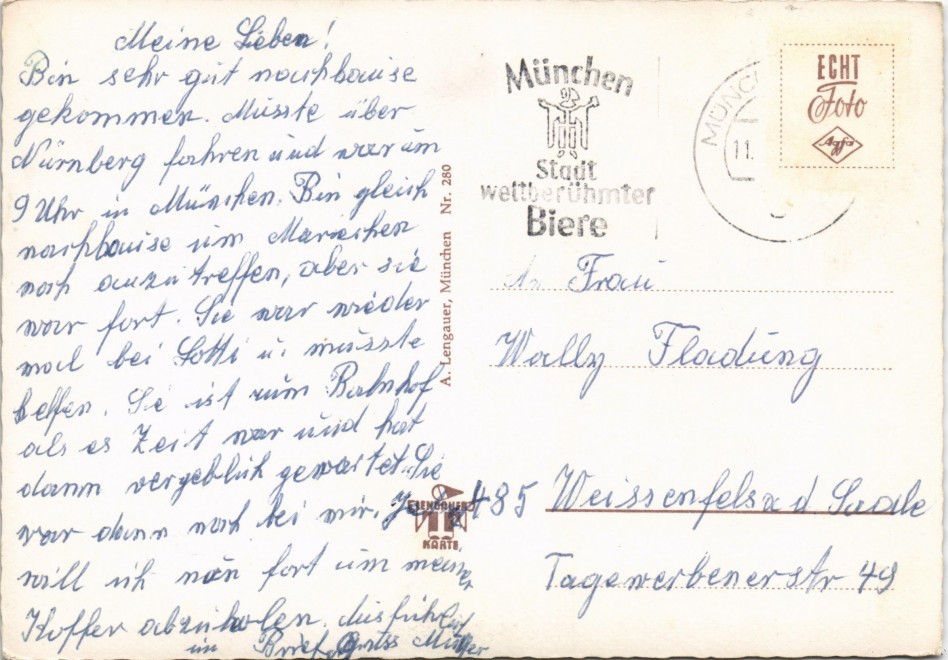 Meine Lieben!
Bin sehr gut nachhause
gekommen. Musste über
Nürnberg fahren und war um
9 Uhr in München. Bin gleich
nachhause um Mariechen
noch anzutreffen, aber sie
war fort. Sie war wieder
mal bei Lotti u. musste
helfen. Sie ist zum Bahnhof
als es Zeit war und hat
dann vergeblich gewartet. Sie
war dann noch bei mir. Jetzt
will ich nun fort um meine
Koffer abzuholen. Ausführlich
im Brief. Gruss Mutter
A. Lengauer, München Nr. 280
LENGAUER
KARTE
München
Stadt
weltberühmter
Biere
MÜNC
11.
ECHT
Foto
Agfa
An Frau
Wally Fladung
485 Weissenfels a d. Saale
Tagewerbenerstr 49